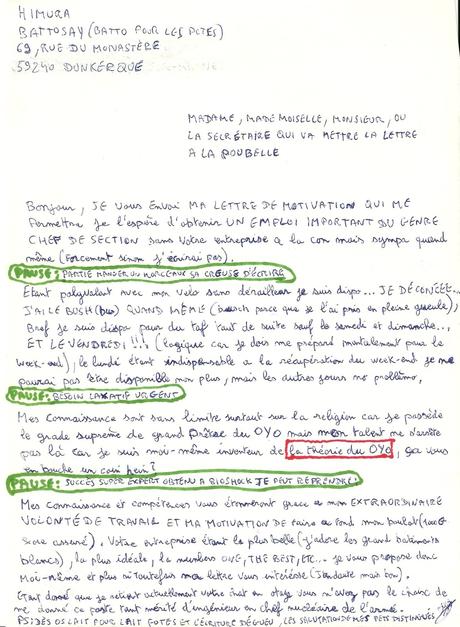 HIMURA
BATTOSAY (BATTO POUR LES POTES)
69, RUE DU MONASTÈRE
59240 DUNKERQUE
MADAME, MADEMOISELLE, MONSIEUR, OU
LA SECRÉTAIRE QUI VA METTRE LA LETTRE
A LA POUBELLE
Bonjour, JE VOUS ENVOI MA LETTRE DE MOTIVATION QUI ME
permettra je l'espère d'obtenir UN EMPLOI IMPORTANT DU GENRE
CHEF DE SECTION dans votre entreprise a la con mais sympa quand
même (forcement sinon j'écrirai pas).
PAUSE: PARTIE MANGER UN MORCEAUX SA CREUSE D'ÉCRIRE
Étant polyvalent avec mon velo sans dérailleur je suis dispo... JE DÉCONCÉE...
J'AI LE BUSH (bus) QUAND MÊME (busch parce que je l'ai pris en pleine gueule),
Bref je suis dispo pour du taf tout de suite sauf le samedi et dimanche...,
ET LE VENDREDI !!! (logique car je dois me préparé mentalement pour le
week-end), le lundi étant indispensable a la récupération du week-end je ne
pourai pas être disponible non plus, mais les autres jours no problémo,
PAUSE: BESOIN LAXATIF URGENT
Mes connaissance sont sans limite surtout sur la religion car je possède
le grade suprême de grand Prêtre du OYO mais mon talent ne s'arrête
pas là car je suis moi-même inventeur de la théorie du OYO, ça vous
en bouche un coin hein?
PAUSE: SUCCÈS SUPER EXPERT OBTENU A BIOSHOCK JE PEUT REPRENDRE!
Mes connaissance et compétences vous étonneront grace a mon EXTRAORDINAIRE
VOLONTÉ DE TRAVAIL ET MA MOTIVATION DE faire a fond mon boulot
score assuré). Votre entreprise étant la plus belle (j'adore les grand batiments
blancs), la plus idéale, la numbers ONE, THE BEST, ETC... je vous propose donc
Moi-même et plus si toutefois ma lettre vous intéresse (J'en doute mais bon).
Étant donné que je retient actuellement votre chat en otage vous n'avez pas le choix de
me donné ce poste tant mérité d'ingénieur en chef nucléaire de l'armé.
PS: DÉSOLAIT POUR LAIT FOTES ET L'ÉCRITURE DÉGUEU, LES SALUTATION DE MES PETS DISTINGUÉS